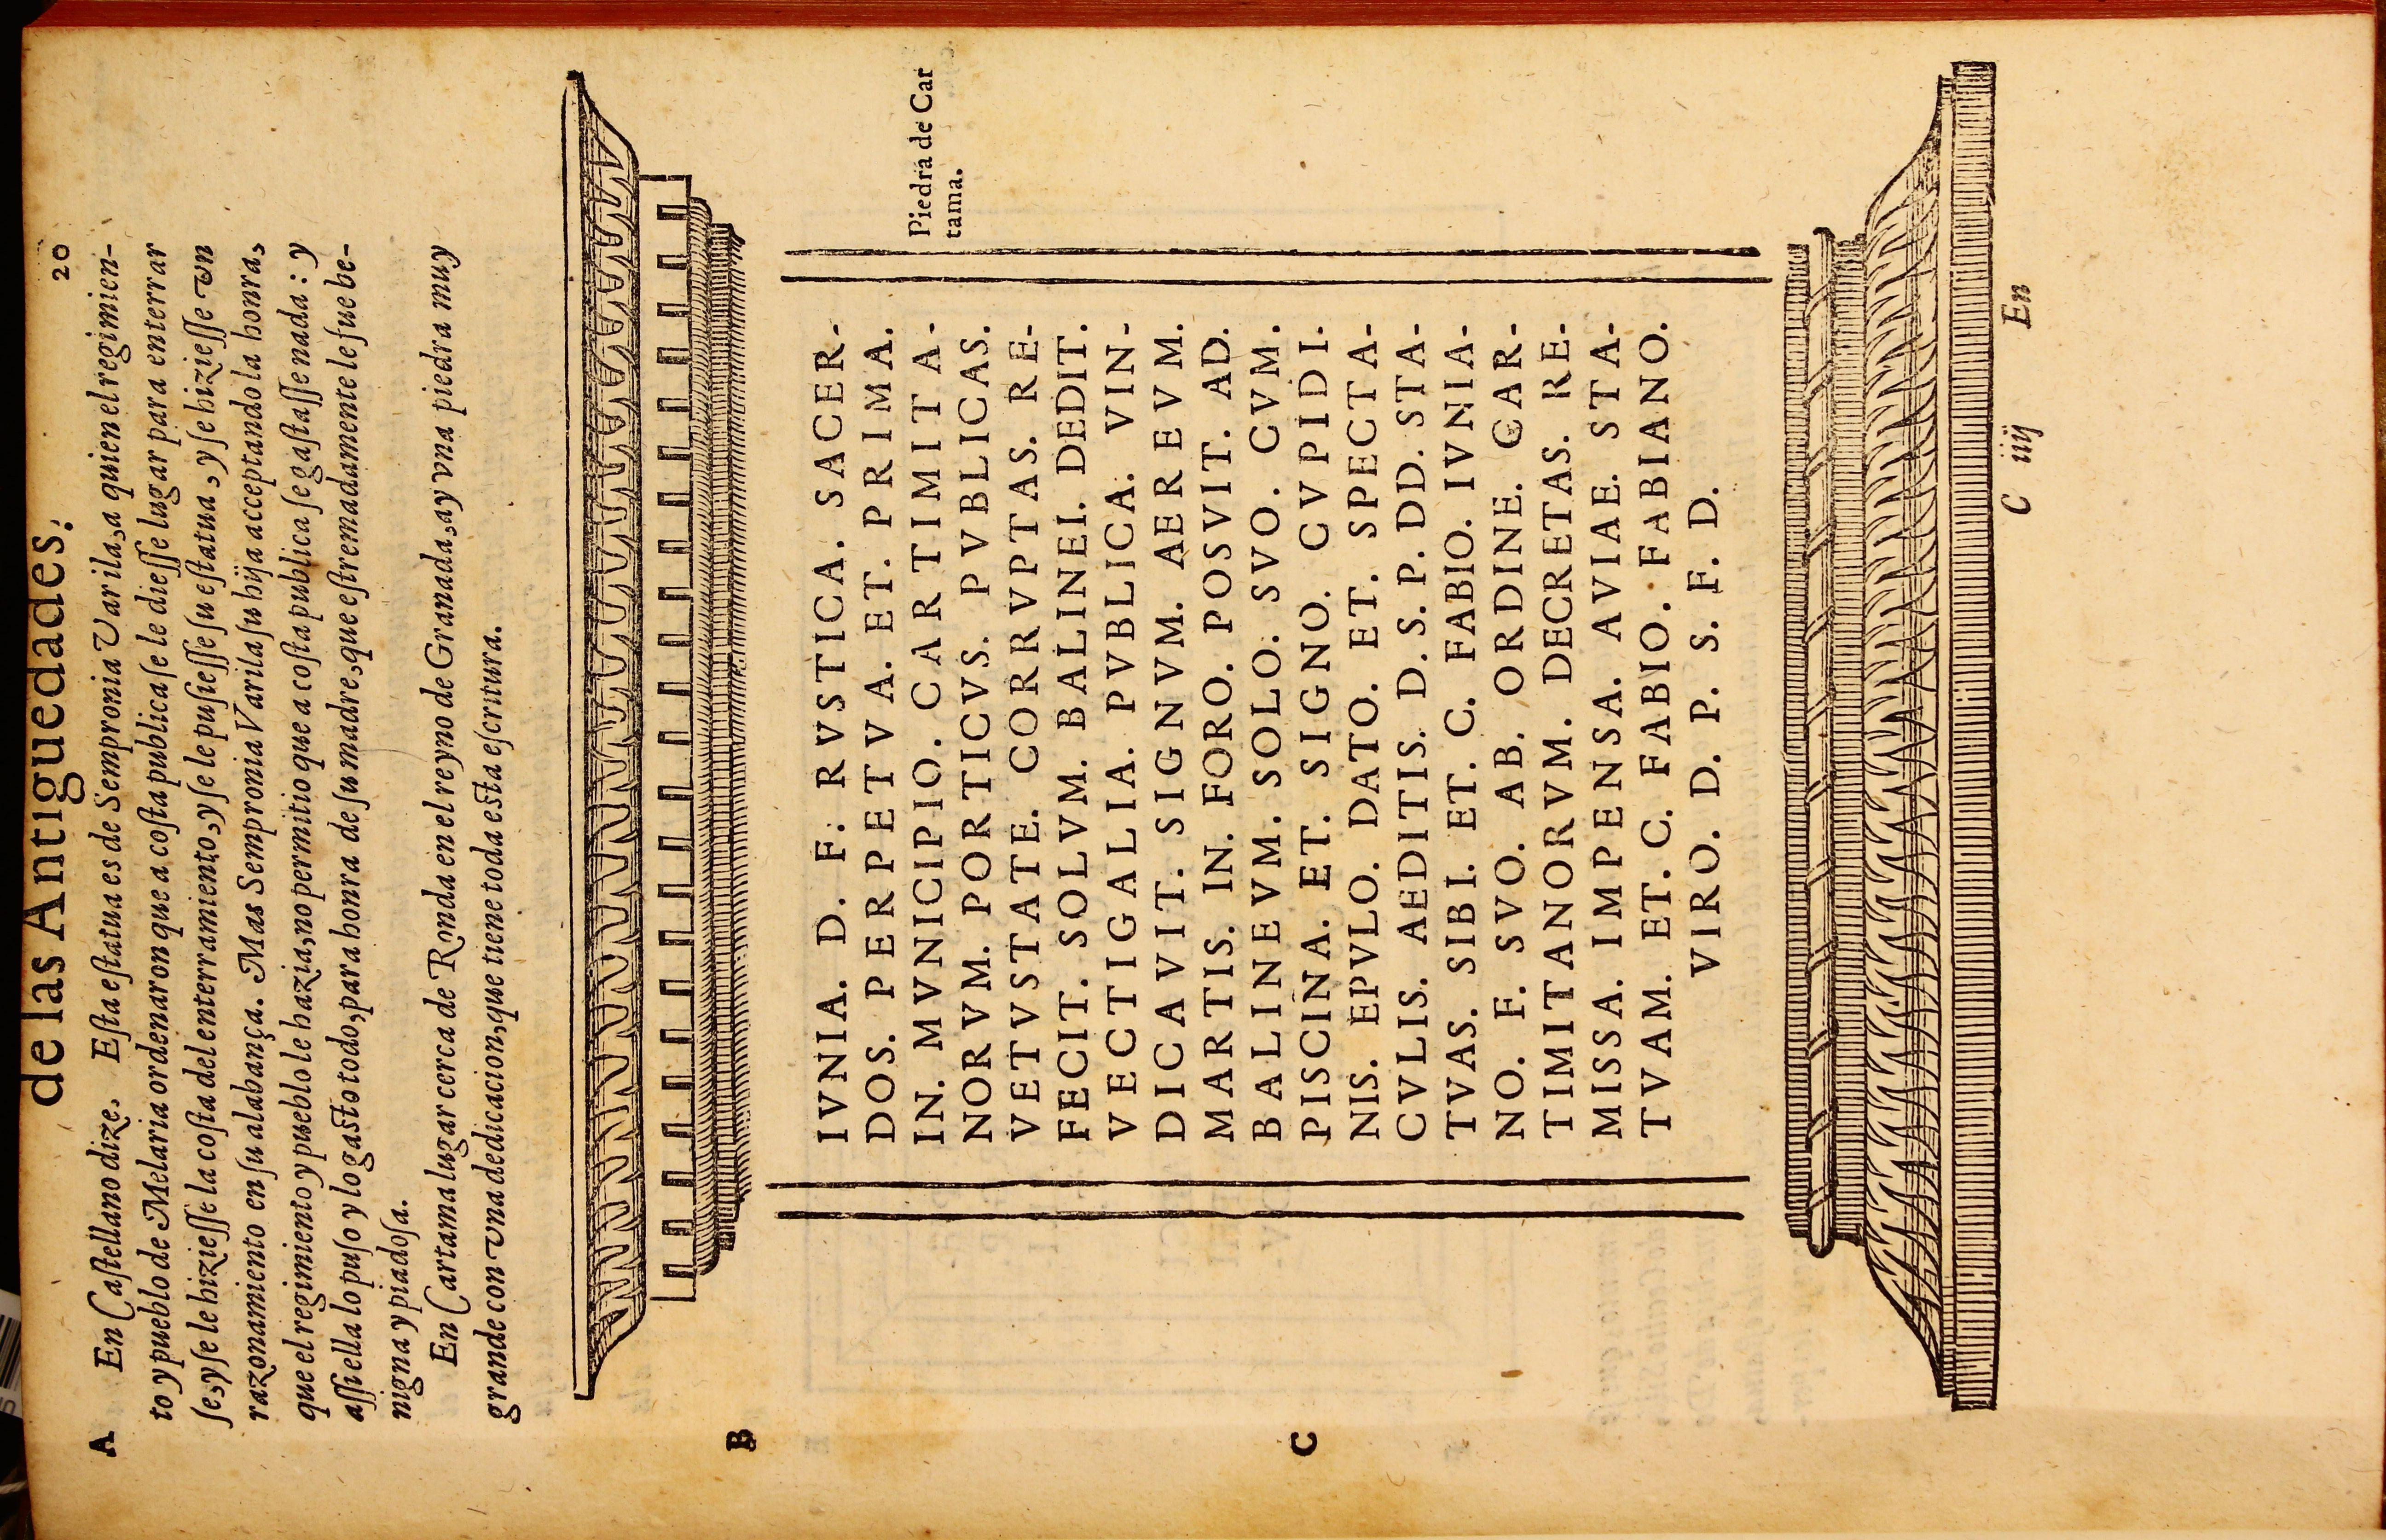 de las Antiguedades. 20
A En Castellano dize. Esta estatua es de Sempronia Varila, a quien el regimien-
to y pueblo de Melaria ordenaron que a costa publica se le diesse lugar para enterrar
se, y se le hiziesse la costa del enterramiento, y se le pusiesse su estatua, y se hiziesse vn
razonamiento en su alabança. Mas Sempronia Varila su hija acceptando la honra,
que el regimiento y pueblo le hazia, no permitio que a costa publica se gastasse nada: y
assi ella lo puso y lo gasto todo, para honra de su madre, que estremadamente le fue be-
nigna y piadosa.
En Cartama lugar cerca de Ronda en el reyno de Granada, ay vna piedra muy
grande con vna dedicacion, que tiene toda esta escritura.
B
IVNIA. D. F. RVSTICA. SACER-
DOS. PERPETVA. ET. PRIMA.
IN. MVNICIPIO. CARTIMITA-
Piedra de Car
tama.
NORVM. PORTICVS. PVBLICAS.
VETVSTATE. CORRVPTAS. RE-
FECIT. SOLVM. BALINEI. DEDIT.
VECTIGALIA. PVBLICA. VIN-
DICAVIT. SIGNVM. AEREVM.
MARTIS. IN. FORO. POSVIT. AD.
BALINEVM. SOLO. SVO. CVM.
C
PISCINA. ET. SIGNO. CVPIDI-
NIS. EPVLO. DATO. ET. SPECTA-
CVLIS. AEDITIS. D. S. P. DD. STA-
TVAS. SIBI. ET. C. FABIO. IVNIA-
NO. F. SVO. AB. ORDINE. CAR-
TIMITANORVM. DECRETAS. RE-
MISSA. IMPENSA. AVIAE. STA-
TVAM. ET. C. FABIO. FABIANO.
VIRO. D. P. S. F. D.
C iiij En